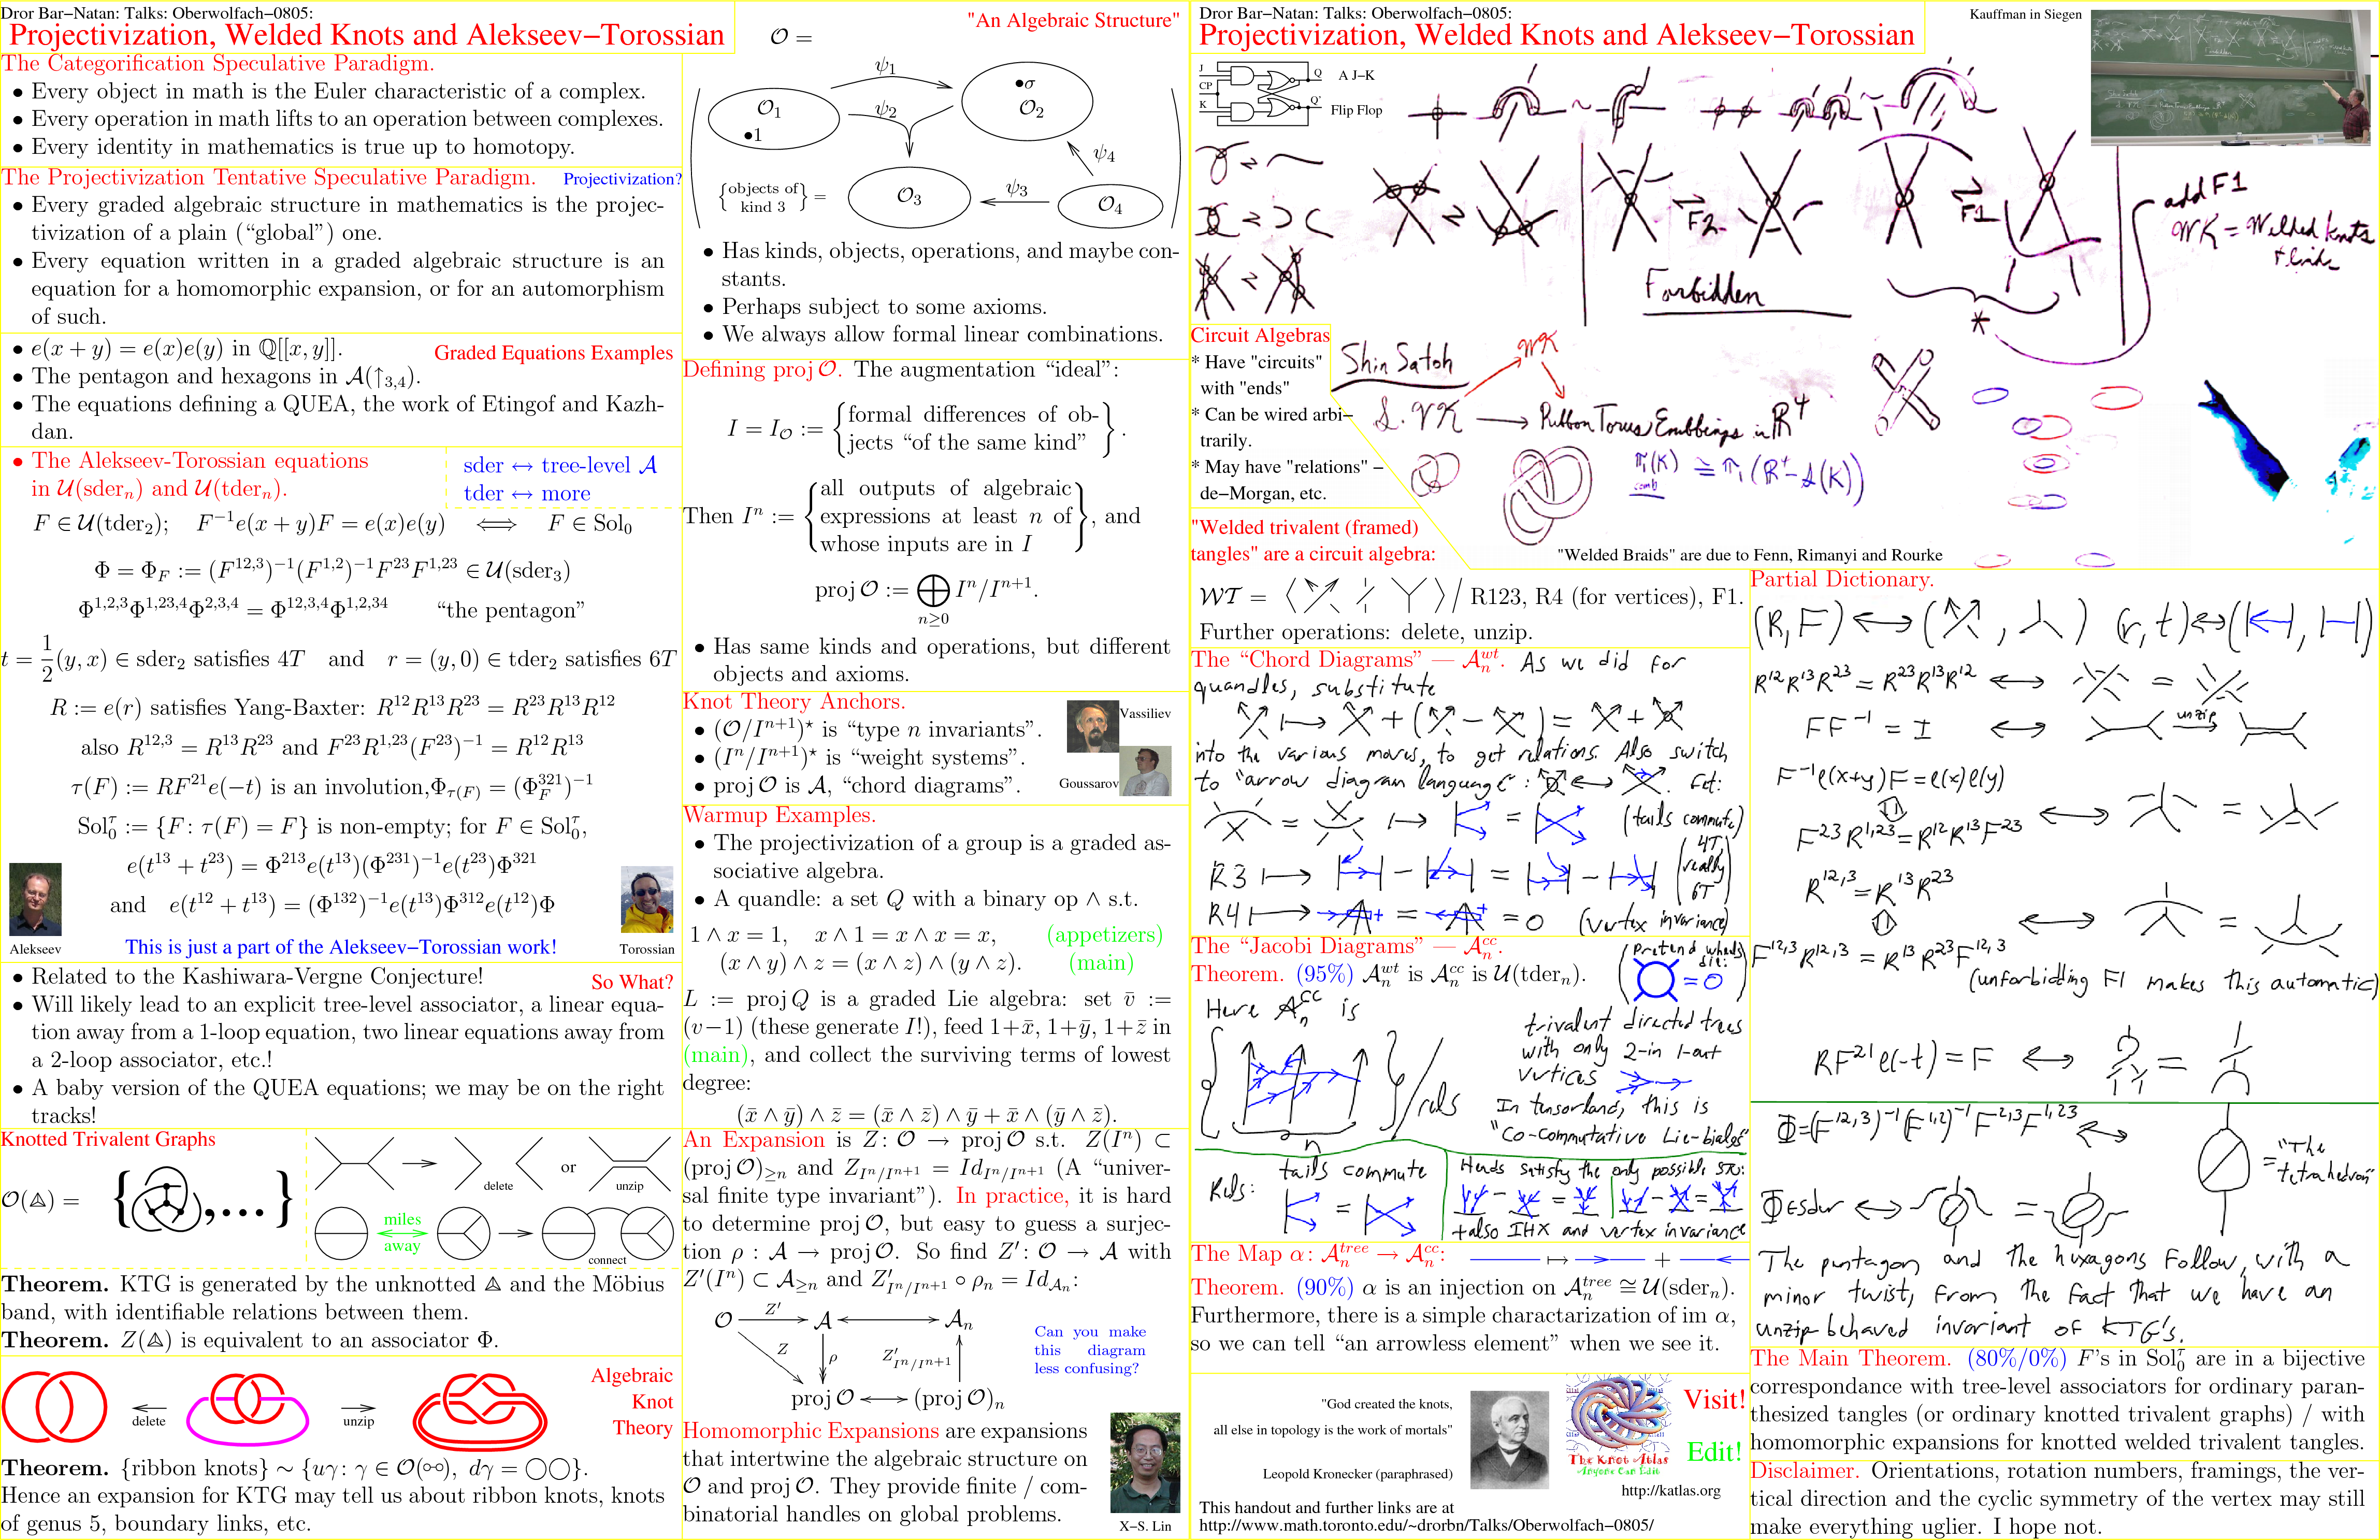 Dror Bar−Natan: Talks: Oberwolfach−0805:
Projectivization, Welded Knots and Alekseev−Torossian
The Categorification Speculative Paradigm.
• Every object in math is the Euler characteristic of a complex.
• Every operation in math lifts to an operation between complexes.
• Every identity in mathematics is true up to homotopy.
The Projectivization Tentative Speculative Paradigm. Projectivization?
• Every graded algebraic structure in mathematics is the projec-
tivization of a plain (“global”) one.
• Every equation written in a graded algebraic structure is an
equation for a homomorphic expansion, or for an automorphism
of such.
• e(x + y) = e(x)e(y) in ℚ[[x, y]]. Graded Equations Examples
• The pentagon and hexagons in 𝒜(↑₃,₄).
• The equations defining a QUEA, the work of Etingof and Kazh-
dan.
• The Alekseev-Torossian equations
in 𝒰(sderₙ) and 𝒰(tderₙ).
sder ↔ tree-level 𝒜
tder ↔ more
F ∈ 𝒰(tder₂); F⁻¹e(x + y)F = e(x)e(y) ⟺ F ∈ Sol₀
Φ = Φ_F := (F^{12,3})⁻¹(F^{1,2})⁻¹F^{23}F^{1,23} ∈ 𝒰(sder₃)
Φ^{1,2,3}Φ^{1,23,4}Φ^{2,3,4} = Φ^{12,3,4}Φ^{1,2,34} “the pentagon”
t = 1/2(y, x) ∈ sder₂ satisfies 4T and r = (y, 0) ∈ tder₂ satisfies 6T
R := e(r) satisfies Yang-Baxter: R^{12}R^{13}R^{23} = R^{23}R^{13}R^{12}
also R^{12,3} = R^{13}R^{23} and F^{23}R^{1,23}(F^{23})⁻¹ = R^{12}R^{13}
τ(F) := RF^{21}e(−t) is an involution, Φ_{τ(F)} = (Φ_F^{321})⁻¹
Sol₀^τ := {F : τ(F) = F} is non-empty; for F ∈ Sol₀^τ,
e(t^{13} + t^{23}) = Φ^{213}e(t^{13})(Φ^{231})⁻¹e(t^{23})Φ^{321}
and e(t^{12} + t^{13}) = (Φ^{132})⁻¹e(t^{13})Φ^{312}e(t^{12})Φ
Alekseev
This is just a part of the Alekseev−Torossian work!
Torossian
• Related to the Kashiwara-Vergne Conjecture! So What?
• Will likely lead to an explicit tree-level associator, a linear equa-
tion away from a 1-loop equation, two linear equations away from
a 2-loop associator, etc.!
• A baby version of the QUEA equations; we may be on the right
tracks!
Knotted Trivalent Graphs
𝒪( ) = { , ...}
delete or unzip
miles away
connect
Theorem. KTG is generated by the unknotted and the Möbius
band, with identifiable relations between them.
Theorem. Z( ) is equivalent to an associator Φ.
delete unzip
Algebraic
Knot
Theory
Theorem. {ribbon knots} ∼ {uγ : γ ∈ 𝒪( ), dγ = ○○}.
Hence an expansion for KTG may tell us about ribbon knots, knots
of genus 5, boundary links, etc.
𝒪 =
"An Algebraic Structure"
𝒪₁ •1 ψ₁ ψ₂ •σ 𝒪₂
{objects of kind 3} = 𝒪₃ ψ₃ 𝒪₄ ψ₄
• Has kinds, objects, operations, and maybe con-
stants.
• Perhaps subject to some axioms.
• We always allow formal linear combinations.
Defining proj 𝒪. The augmentation “ideal”:
I = I_𝒪 := {formal differences of ob-
jects “of the same kind”}.
Then Iⁿ := {all outputs of algebraic
expressions at least n of
whose inputs are in I}, and
proj 𝒪 := ⊕_{n≥0} Iⁿ/Iⁿ⁺¹.
• Has same kinds and operations, but different
objects and axioms.
Knot Theory Anchors.
• (𝒪/Iⁿ⁺¹)* is “type n invariants”. Vassiliev
• (Iⁿ/Iⁿ⁺¹)* is “weight systems”.
• proj 𝒪 is 𝒜, “chord diagrams”. Goussarov
Warmup Examples.
• The projectivization of a group is a graded as-
sociative algebra.
• A quandle: a set Q with a binary op ∧ s.t.
1 ∧ x = 1, x ∧ 1 = x ∧ x = x, (appetizers)
(x ∧ y) ∧ z = (x ∧ z) ∧ (y ∧ z). (main)
L := proj Q is a graded Lie algebra: set v̄ :=
(v−1) (these generate I!), feed 1+x̄, 1+ȳ, 1+z̄ in
(main), and collect the surviving terms of lowest
degree:
(x̄ ∧ ȳ) ∧ z̄ = (x̄ ∧ z̄) ∧ ȳ + x̄ ∧ (ȳ ∧ z̄).
An Expansion is Z : 𝒪 → proj 𝒪 s.t. Z(Iⁿ) ⊂
(proj 𝒪)≥ₙ and Z_{Iⁿ/Iⁿ⁺¹} = Id_{Iⁿ/Iⁿ⁺¹} (A “univer-
sal finite type invariant”). In practice, it is hard
to determine proj 𝒪, but easy to guess a surjec-
tion ρ : 𝒜 → proj 𝒪. So find Z′ : 𝒪 → 𝒜 with
Z′(Iⁿ) ⊂ 𝒜≥ₙ and Z′_{Iⁿ/Iⁿ⁺¹} ∘ ρₙ = Id_{𝒜ₙ}:
𝒪 Z′ 𝒜 𝒜ₙ
Z ρ Z′_{Iⁿ/Iⁿ⁺¹}
proj 𝒪 (proj 𝒪)ₙ
Can you make
this diagram
less confusing?
Homomorphic Expansions are expansions
that intertwine the algebraic structure on
𝒪 and proj 𝒪. They provide finite / com-
binatorial handles on global problems.
X−S. Lin
Dror Bar−Natan: Talks: Oberwolfach−0805:
Projectivization, Welded Knots and Alekseev−Torossian
Kauffman in Siegen
J CP K Q Q'
A J−K
Flip Flop
F2
F1
Forbidden
*
add F1
WK = Welded knots
+ links
Circuit Algebras
* Have "circuits"
with "ends"
* Can be wired arbi−
trarily.
* May have "relations" −
de−Morgan, etc.
Shin Satoh
WK
S. VK → Ribbon Torus Embeddings in R⁴
π₁(K) comb ≅ π₁(R⁴ − S(K))
"Welded Braids" are due to Fenn, Rimanyi and Rourke
"Welded trivalent (framed)
tangles" are a circuit algebra:
𝒲𝒯 = ⟨ ⟩/ R123, R4 (for vertices), F1.
Further operations: delete, unzip.
The “Chord Diagrams” — 𝒜ₙ^{wt}. As we did for
quandles, substitute
into the various moves, to get relations. Also switch
to "arrow diagram language": Get:
(tails commute)
R3 (4T, really 6T)
R4 = 0 (vertex invariance)
The “Jacobi Diagrams” — 𝒜ₙ^{cc}.
(Pretend wheels die: = 0)
Theorem. (95%) 𝒜ₙ^{wt} is 𝒜ₙ^{cc} is 𝒰(tderₙ).
Here 𝒜ₙ^{cc} is
n
/rels
trivalent directed trees
with only 2-in 1-out
vertices
In tensorland, this is
"Co-commutative Lie-bialgs"
Rels: tails commute
Heads satisfy the only possible STU:
+ also IHX and vertex invariance
The Map α: 𝒜ₙ^{tree} → 𝒜ₙ^{cc}: ↦ +
Theorem. (90%) α is an injection on 𝒜ₙ^{tree} ≅ 𝒰(sderₙ).
Furthermore, there is a simple charactarization of im α,
so we can tell “an arrowless element” when we see it.
"God created the knots,
all else in topology is the work of mortals"
Leopold Kronecker (paraphrased)
The Knot Atlas
Anyone Can Edit
Visit!
Edit!
http://katlas.org
This handout and further links are at
http://www.math.toronto.edu/~drorbn/Talks/Oberwolfach−0805/
Partial Dictionary.
(R, F) ↔ ( , ) (r, t) ↔ ( , )
R^{12}R^{13}R^{23} = R^{23}R^{13}R^{12} ↔ =
FF⁻¹ = I ↔ unzip
F⁻¹e(x+y)F = e(x)e(y)
F^{23}R^{1,23} = R^{12}R^{13}F^{23} ↔ =
R^{12,3} = R^{13}R^{23}
F^{12,3}R^{12,3} = R^{13}R^{23}F^{12,3} ↔ =
(unforbidding F1 makes this automatic)
RF^{21}e(-t) = F ↔ =
Φ = (F^{12,3})⁻¹(F^{1,2})⁻¹F^{2,3}F^{1,23} ↔ = "The tetrahedron"
Φ ∈ sder ↔ =
The pentagon and the hexagons follow, with a
minor twist, from the fact that we have an
unzip-behaved invariant of KTG's.
The Main Theorem. (80%/0%) F’s in Sol₀^τ are in a bijective
correspondance with tree-level associators for ordinary paran-
thesized tangles (or ordinary knotted trivalent graphs) / with
homomorphic expansions for knotted welded trivalent tangles.
Disclaimer. Orientations, rotation numbers, framings, the ver-
tical direction and the cyclic symmetry of the vertex may still
make everything uglier. I hope not.